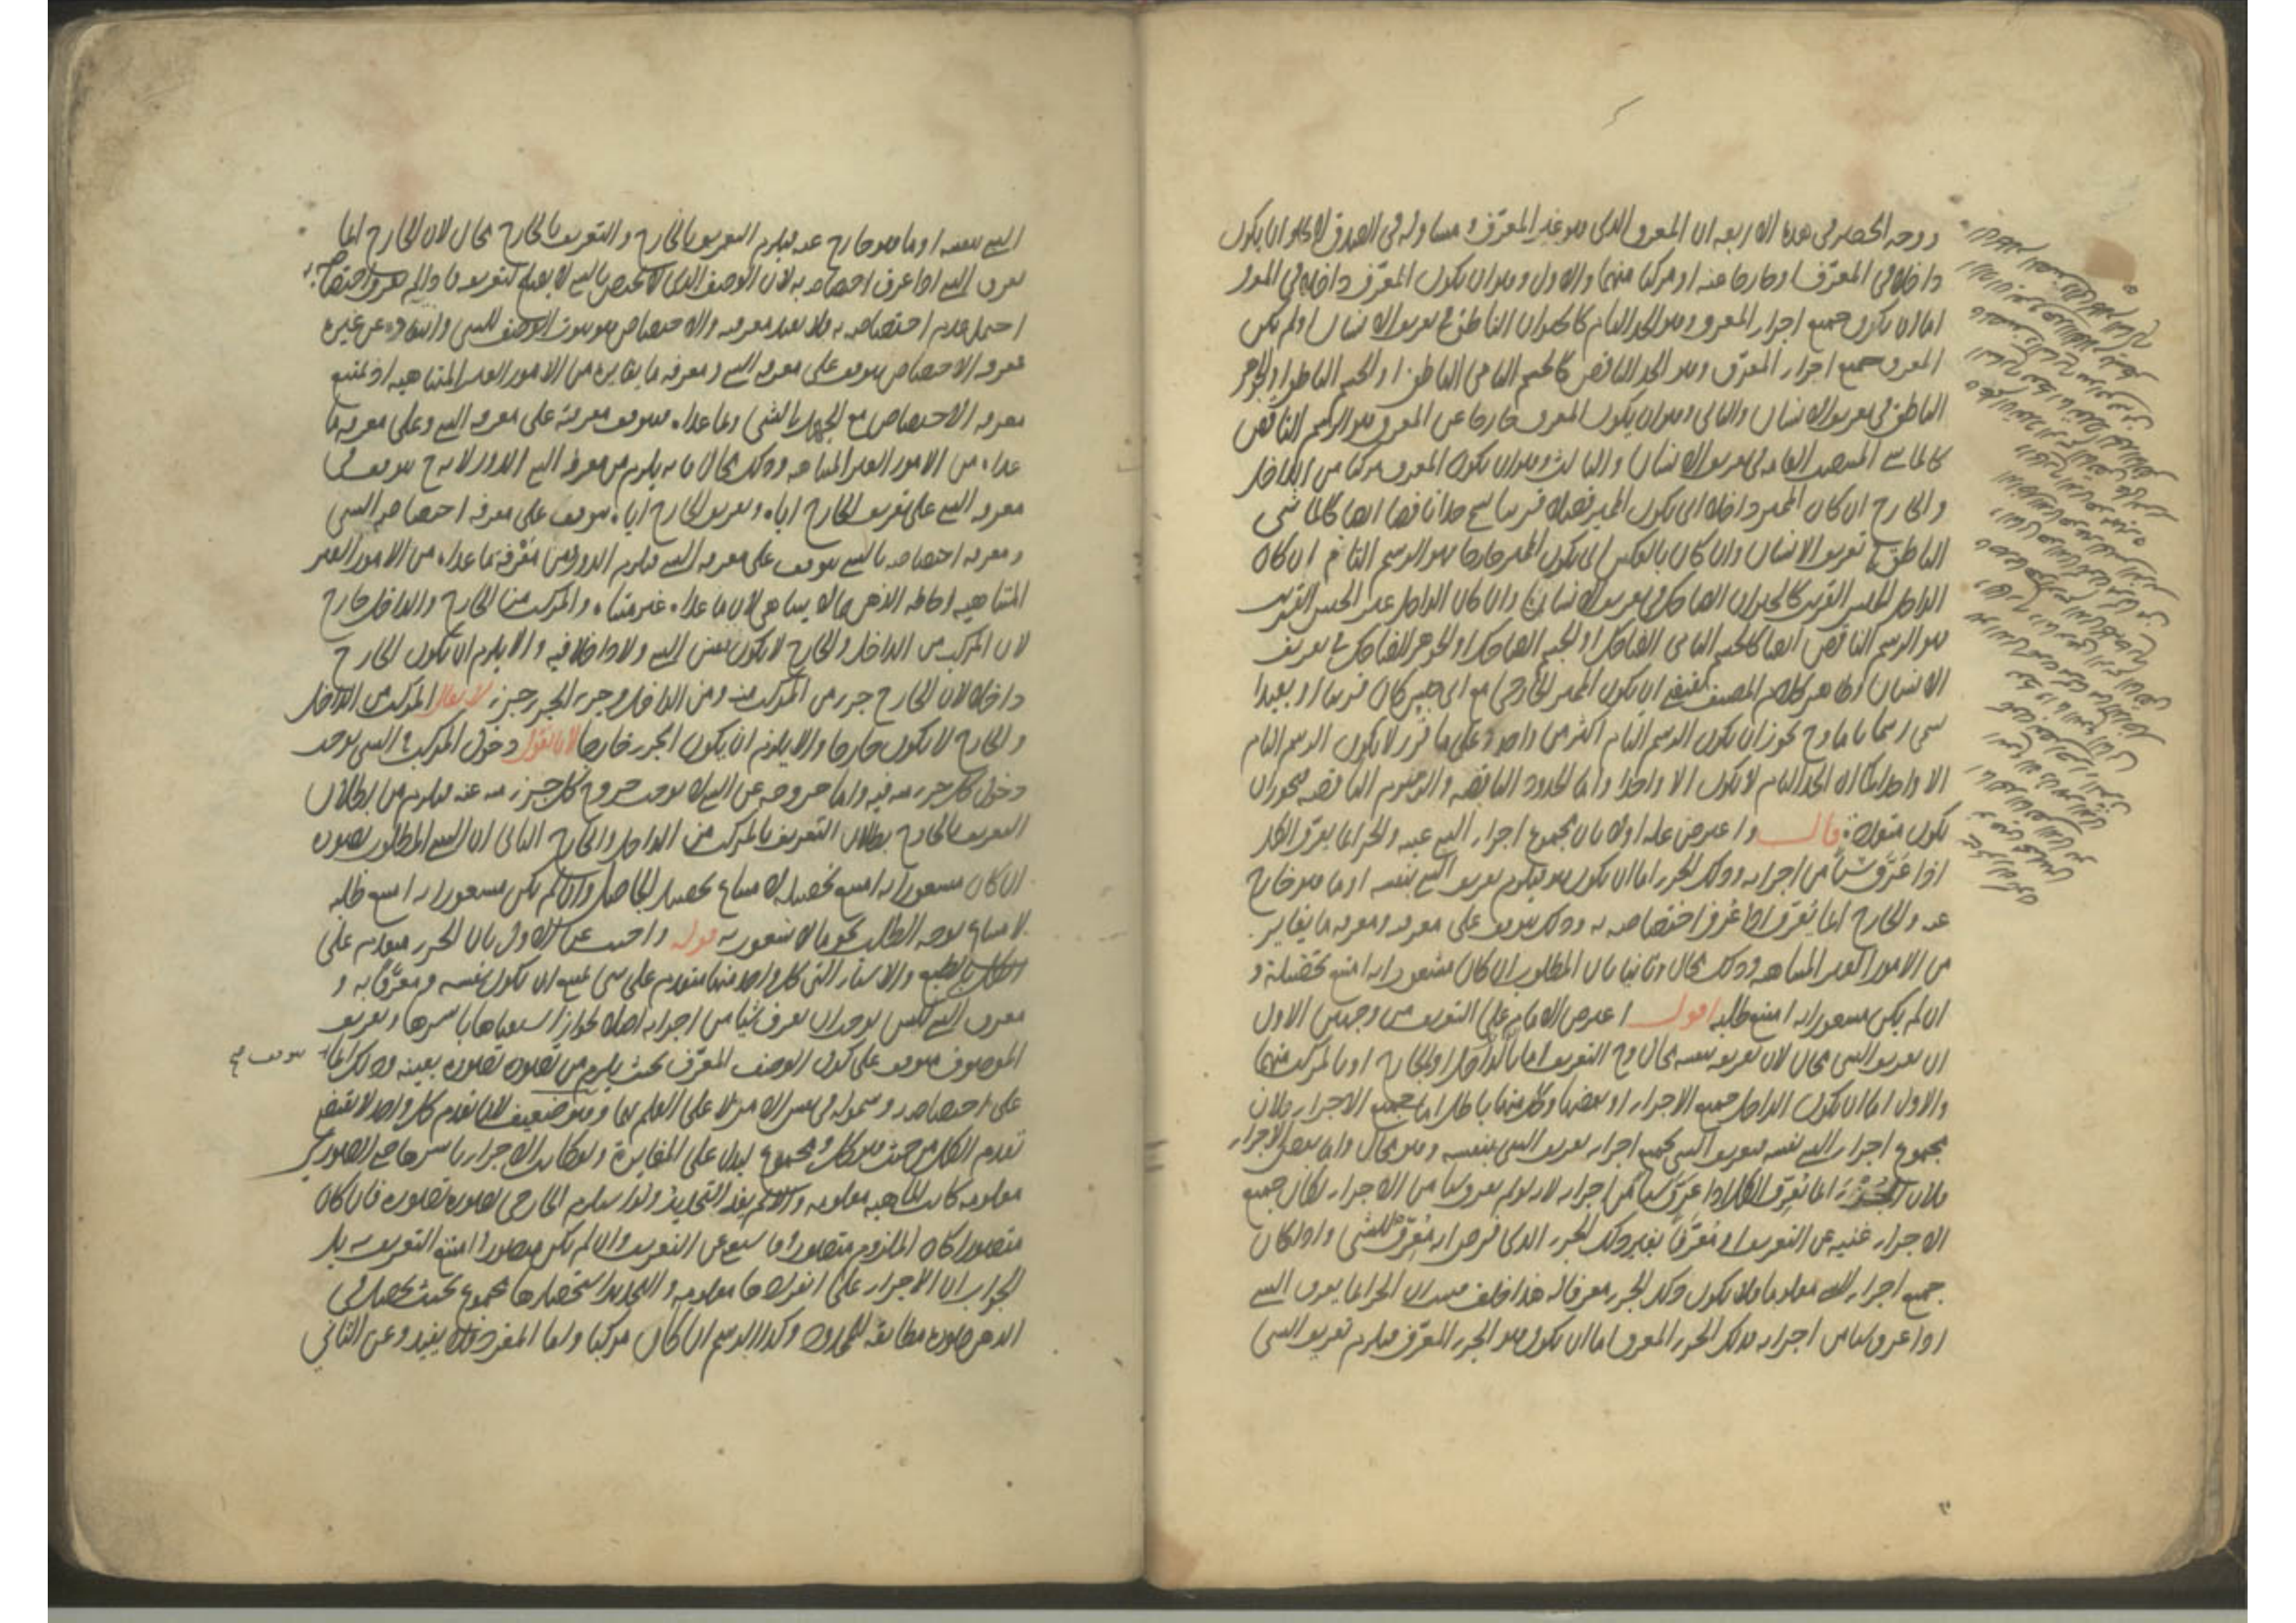 ووجه الحصر في هذه الاربعة ان المعرف الذي هو غير المعرَّف ومساو له في الصدق لا يخلو ان يكون
داخلا في المعرَّف او خارجا عنه او مركبا منهما والاول وهو ان يكون المعرِّف داخلا في المعرف
اما ان يكون جميع اجزاء المعرف وهو الحد التام كالحيوان الناطق في تعريف الانسان او لم يكن
المعرف جميع اجزاء المعرَّف وهو الحد الناقص كالجسم النامي الناطق او الجسم الناطق او الجوهر
الناطق في تعريف الانسان والثاني وهو ان يكون المعرف خارجا عن المعرف هو الرسم الناقص
كالماشي المنتصب القامة في تعريف الانسان والثالث وهو ان يكون المعرف مركبا من الداخل
والخارج ان كان المميز داخلا اي يكون المميز فصلا قريبا سمي حدا ناقصا ايضا كالماشي
الناطق في تعريف الانسان وان كان بالعكس اي يكون المميز خارجا هو الرسم التام ان كان
الداخل الجنس القريب كالحيوان الضاحك في تعريف الانسان وان كان الداخل غير الجنس القريب
هو الرسم الناقص ايضا كالجسم النامي الضاحك او الجسم الضاحك او الجوهر الضاحك في تعريف
الانسان وظاهر كلام المصنف يقتضي ان يكون المميز الخارجي مع اي جنس كان قريبا او بعيدا
سمي رسما تاما وح يجوز ان يكون الرسم التام اكثر من واحد وعلى ما قرر لا يكون الرسم التام
الا واحدا كما ان الحد التام لا يكون الا واحدا واما الحدود الناقصة والرسوم الناقصة فيجوز ان
يكون متعددة قال واعترض عليه اولا بان مجموع اجزاء الشي عينه والجزء انما يعرّف الكل
اذا عَرَّف شيئا من اجزائه وذلك الجزء اما ان يكون هو فيلزم تعريف الشي بنفسه او ما هو خارج
عنه والخارج انما يُعرِّف اذا عُرِفَ اختصاصه به وذلك يتوقف على معرفته ومعرفة ما يغايره
من الامور الغير المتناهية وذلك محال وثانيا بان المطلوب ان كان مشعورا به امتنع تحصيله و
ان لم يكن مشعورا به امتنع طلبه اقول اعترض الامام على التعريف من وجهين الاول
ان تعريف الشي محال لان تعريفه بنفسه محال وح التعريف اما بالداخل او بالخارج او بالمركب منهما
والاول اما ان يكون الداخل جميع الاجزاء او بعضها وكل منهما باطل اما جميع الاجزاء فلان
مجموع اجزاء الشي نفسه فتعريف الشي بجميع اجزائه تعريف الشي بنفسه وهو محال واما بعض الاجزاء
فلان الجزء انما يُعرِّف الكل اذا عرّف شيئا من اجزائه لانه لو لم يعرف شيئا من الاجزاء لكان جميع
الاجزاء غنية عن التعريف او مُعرَّفا بغير ذلك الجزء الذي فرض انه مُعرِّف للشي واذا كان
جميع اجزاء الشي معلوما فلا يكون ذلك الجزء معرفا له هذا خلف فثبت ان الجزء انما يعرف الشي
اذا عرف شيئا من اجزائه فذلك الجزء المعرف اما ان يكون هو الجزء المعرّف فيلزم تعريف الشي
الشي بنفسه او ما هو خارج عنه فيلزم التعريف بالخارج والتعريف بالخارج محال لان الخارج انما
يعرف الشي اذا عرف اختصاصه به لان الوصف الذي لا يختص بالشي لا يصلح لتعريفه فما دام لم يعرف اختصاصه به
احتمل عدم اختصاصه به فلا يفيد معرفته والاختصاص هو ثبوت الوصف للشي وانتفاؤه عن غيره
فمعرفة الاختصاص يتوقف على معرفة الشي ومعرفة ما يغايره من الامور الغير المتناهية اذ يمتنع
معرفة الاختصاص مع الجهل بالشي وبما عداه فيتوقف معرفته على معرفة الشي وعلى معرفة ما
عداه من الامور الغير المتناهية وذلك محال فانه يلزم من معرفة الشي الدور لانه ح يتوقف في
معرفة الشي على تعريف الخارج اياه وتعريف الخارج اياه يتوقف على معرفة اختصاصه بالشي
ومعرفة اختصاصه بالشي يتوقف على معرفة الشي فيلزم الدور ومن مَعْرفة ما عداه من الامور الغير
المتناهية احاطة الذهن بما لا يتناهى لان ما عداه غير متناه والمركب من الخارج والداخل خارج
لان المركب من الداخل والخارج لا يكون نفس الشي ولا داخلا فيه والا يلزم ان يكون الخارج
داخلا لان الخارج جزء من المركب منه ومن الداخل وجزء الجزء جزء لا يقال المركب من الداخل
والخارج لا يكون خارجا والا يلزم ان يكون الجزء خارجا لانا نقول دخول المركب في الشي يوجب
دخول كل جزء منه فيه واما خروجه عن الشي لا يوجب خروج كل جزء منه عنه فيلزم من ابطال
التعريف بالخارج بطلان التعريف بالمركب من الداخل والخارج الثاني ان الشي المطلوب تصوره
ان كان مشعورا به امتنع تحصيله لامتناع تحصيل الحاصل وان لم يكن مشعورا به امتنع طلبه
لامتناع توجه الطلب نحو ما لا شعور به قوله واجيب عن الاول بان الجزء متقدم على
الكل بالطبع والاشياء التي كل واحد منها متقدم على شي يمتنع ان يكون نفسه ومعرَّفا به و
معرف الشي ليس يوجب ان يعرف شيئا من اجزائه اصلا لجواز استغنائها باسرها وتعريف
الموصوف متوقف على كون الوصف المعرّف بحيث يلزم من تصوره تصوره بعينه وذلك انما يتوقف صح
على اختصاصه وشموله في نفس الامر لا على العلم بهما وهو ضعيف لان تقدم كل واحد لا يقتضي
تقدم الكل من حيث هو كل ومجموع ليدل على المغايرة ولو كانت الاجزاء باسرها
معلومة كانت الماهية معلومة والا لم يفد التحديد ولو استلزم الخارجي تصوره تصوره فان كان
متصورا كان الملزوم متصورا فاستغنى عن التعريف وان لم يكن متصورا امتنع التعريف به بل
الجواب ان الاجزاء على انفرادها معلومة والتحديد استحضارها مجموع بحيث يحصل في
الذهن صورة مطابقة للمحدود وكذا الرسم ان كان مركبا واما المفرد فلا يفيد وعن الثاني